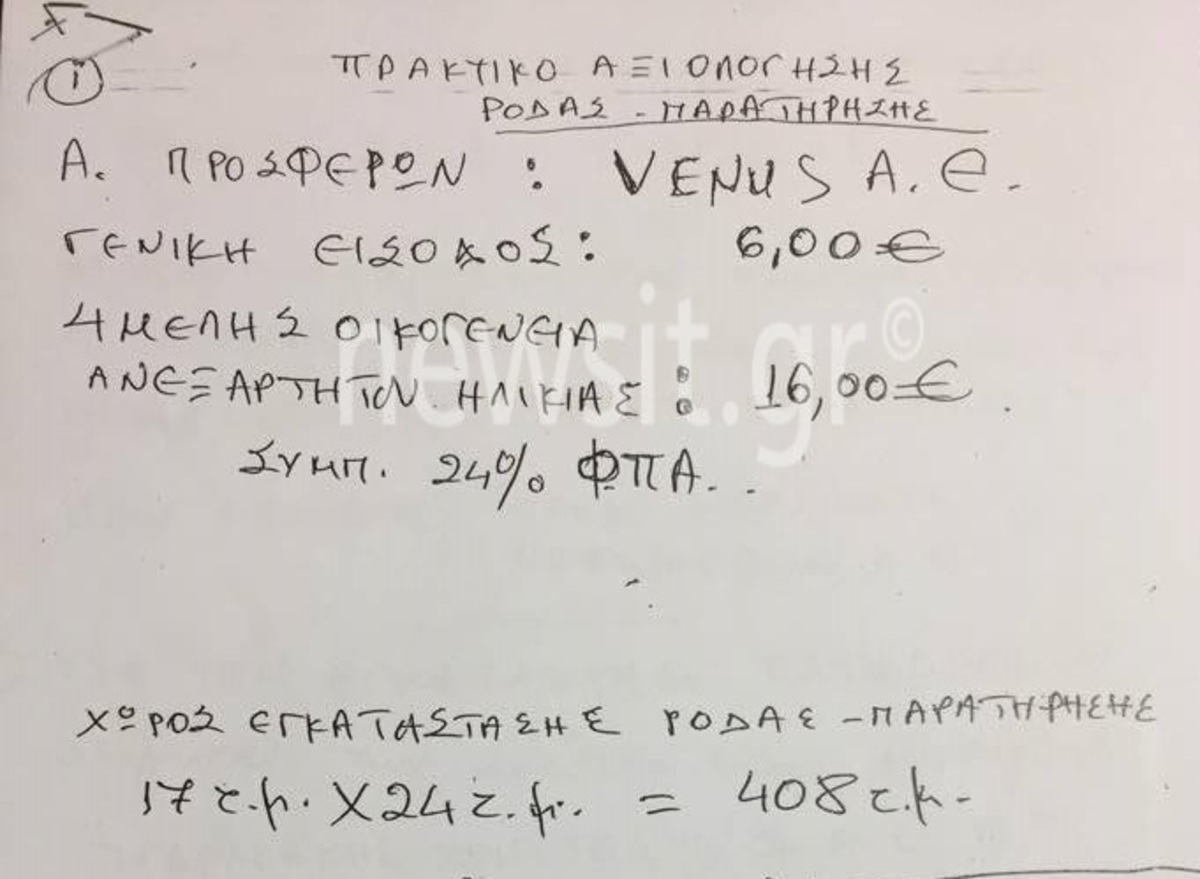 Χ
1
ΠΡΑΚΤΙΚΟ ΑΞΙΟΛΟΓΗΣΗΣ
ΡΟΔΑΣ - ΠΑΡΑΤΗΡΗΣΗΣ
Α. ΠΡΟΣΦΕΡΩΝ : VENUS Α.Ε.
ΓΕΝΙΚΗ ΕΙΣΟΔΟΣ : 6,00 €
4ΜΕΛΗΣ ΟΙΚΟΓΕΝΕΙΑ
ΑΝΕΞΑΡΤΗΤΟΝ ΗΛΙΚΙΑΣ : 16,00 €
ΣΥΜΠ. 24% ΦΠΑ..
newsit.gr©
ΧΩΡΟΣ ΕΓΚΑΤΑΣΤΑΣΗΣ ΡΟΔΑΣ - ΠΑΡΑΤΗΡΗΣΗΣ
17 τ.μ. Χ 24 τ.μ. = 408 τ.μ.